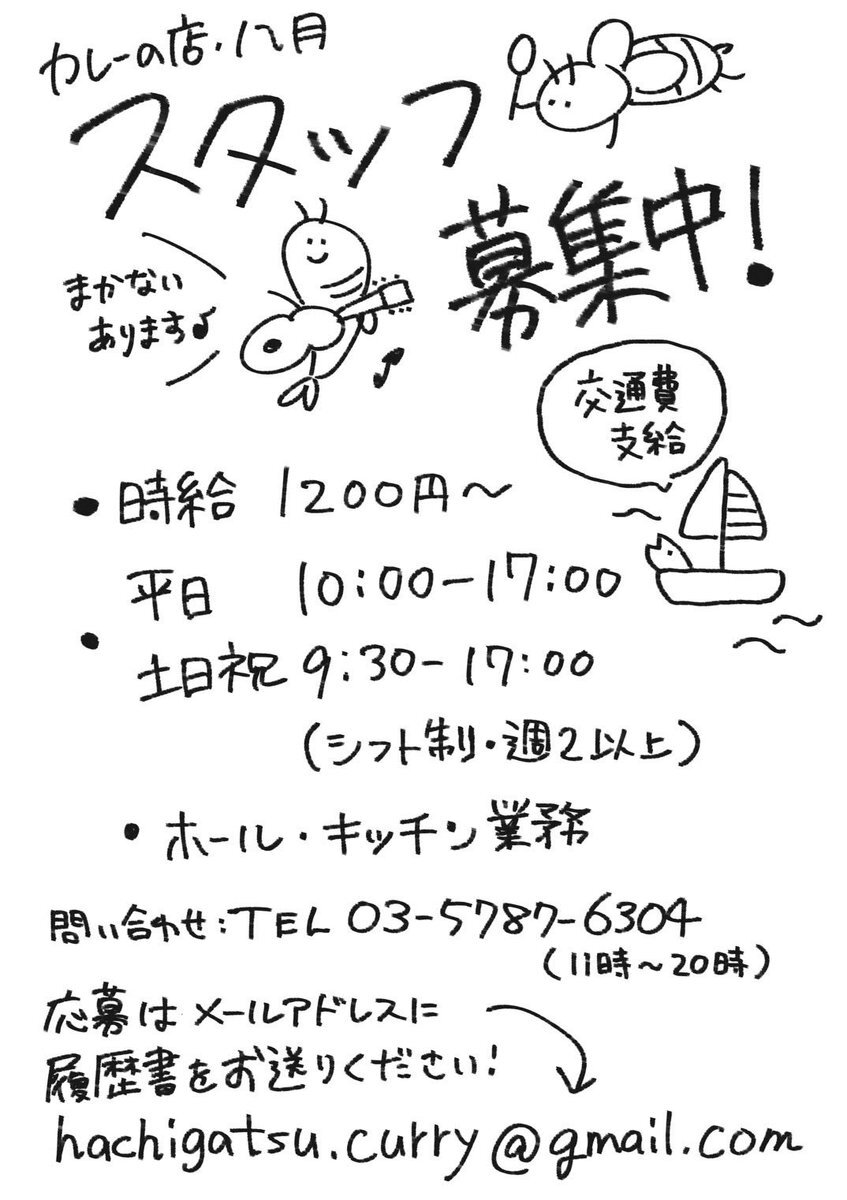 カレーの店・八月
スタッフ
募集中！
まかない
あります♪
交通費
支給
• 時給 1200円〜
平日 10:00-17:00
• 土日祝 9:30-17:00
(シフト制・週2以上)
• ホール・キッチン業務
問い合わせ:TEL 03-5787-6304
(11時〜20時)
応募はメールアドレスに
履歴書をお送りください!
hachigatsu.curry@gmail.com